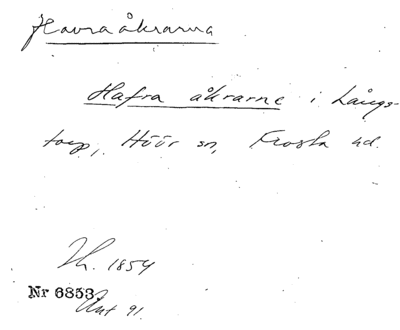 Havraåkrarna
Hafra åkrarne i Långs-
torp, Höör sn, Frosta hd.
Th. 1854
Nr 6853.
Ant 91.